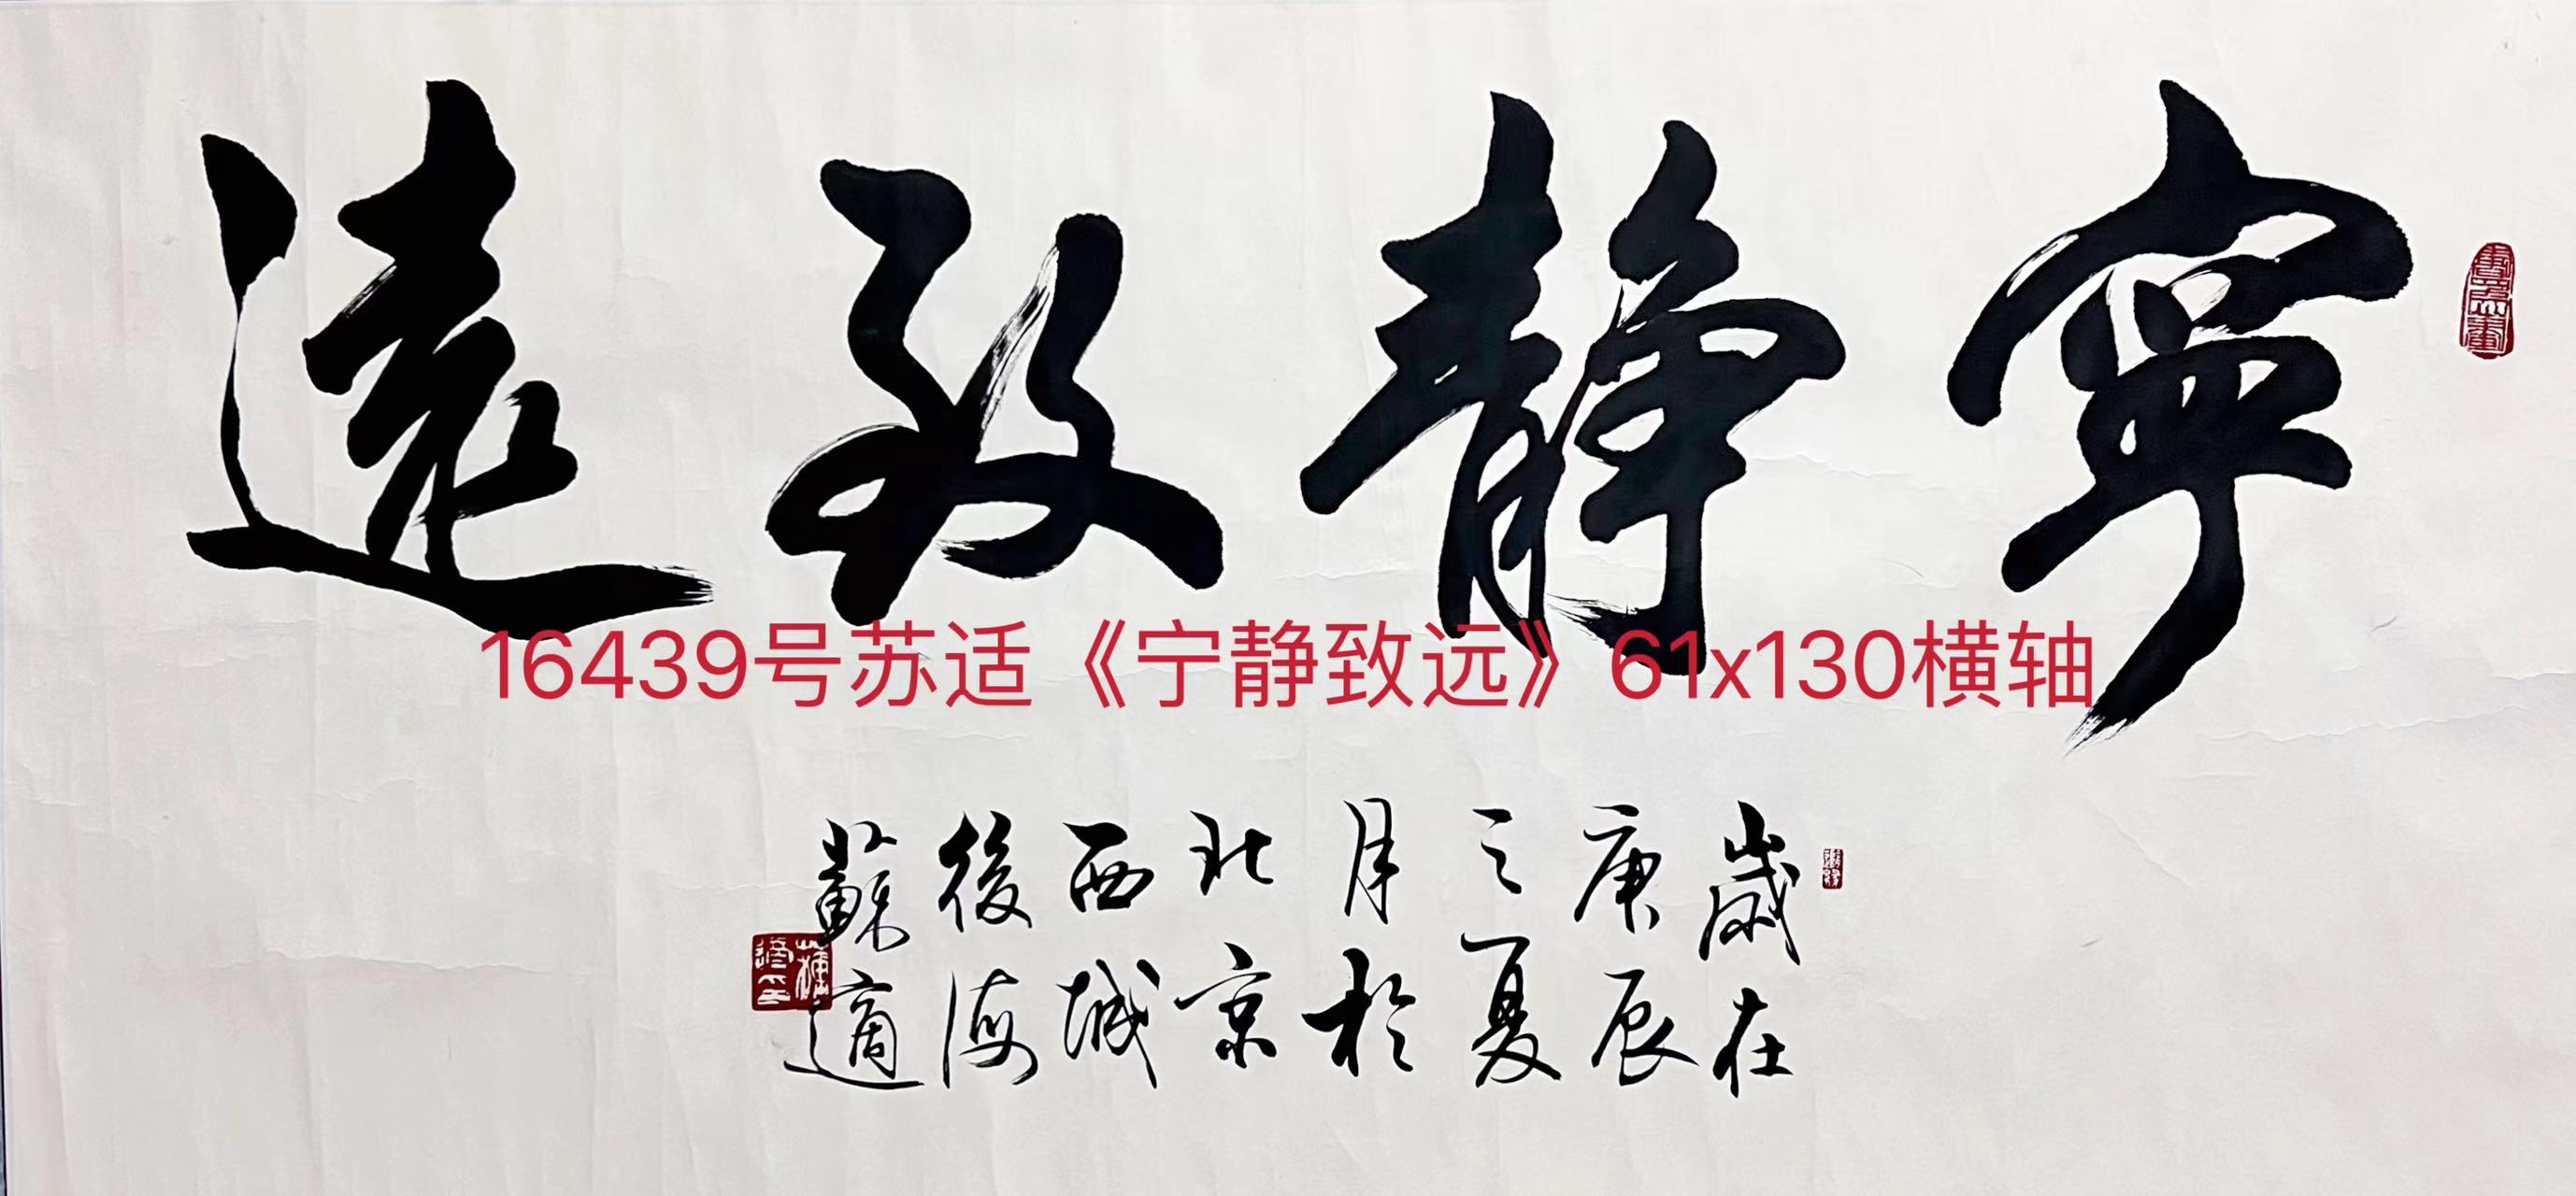 寧靜致遠
16439号苏适《宁静致远》61x130横轴
歲在
庚辰
之夏
月於
北京
西城
後海
蘇適